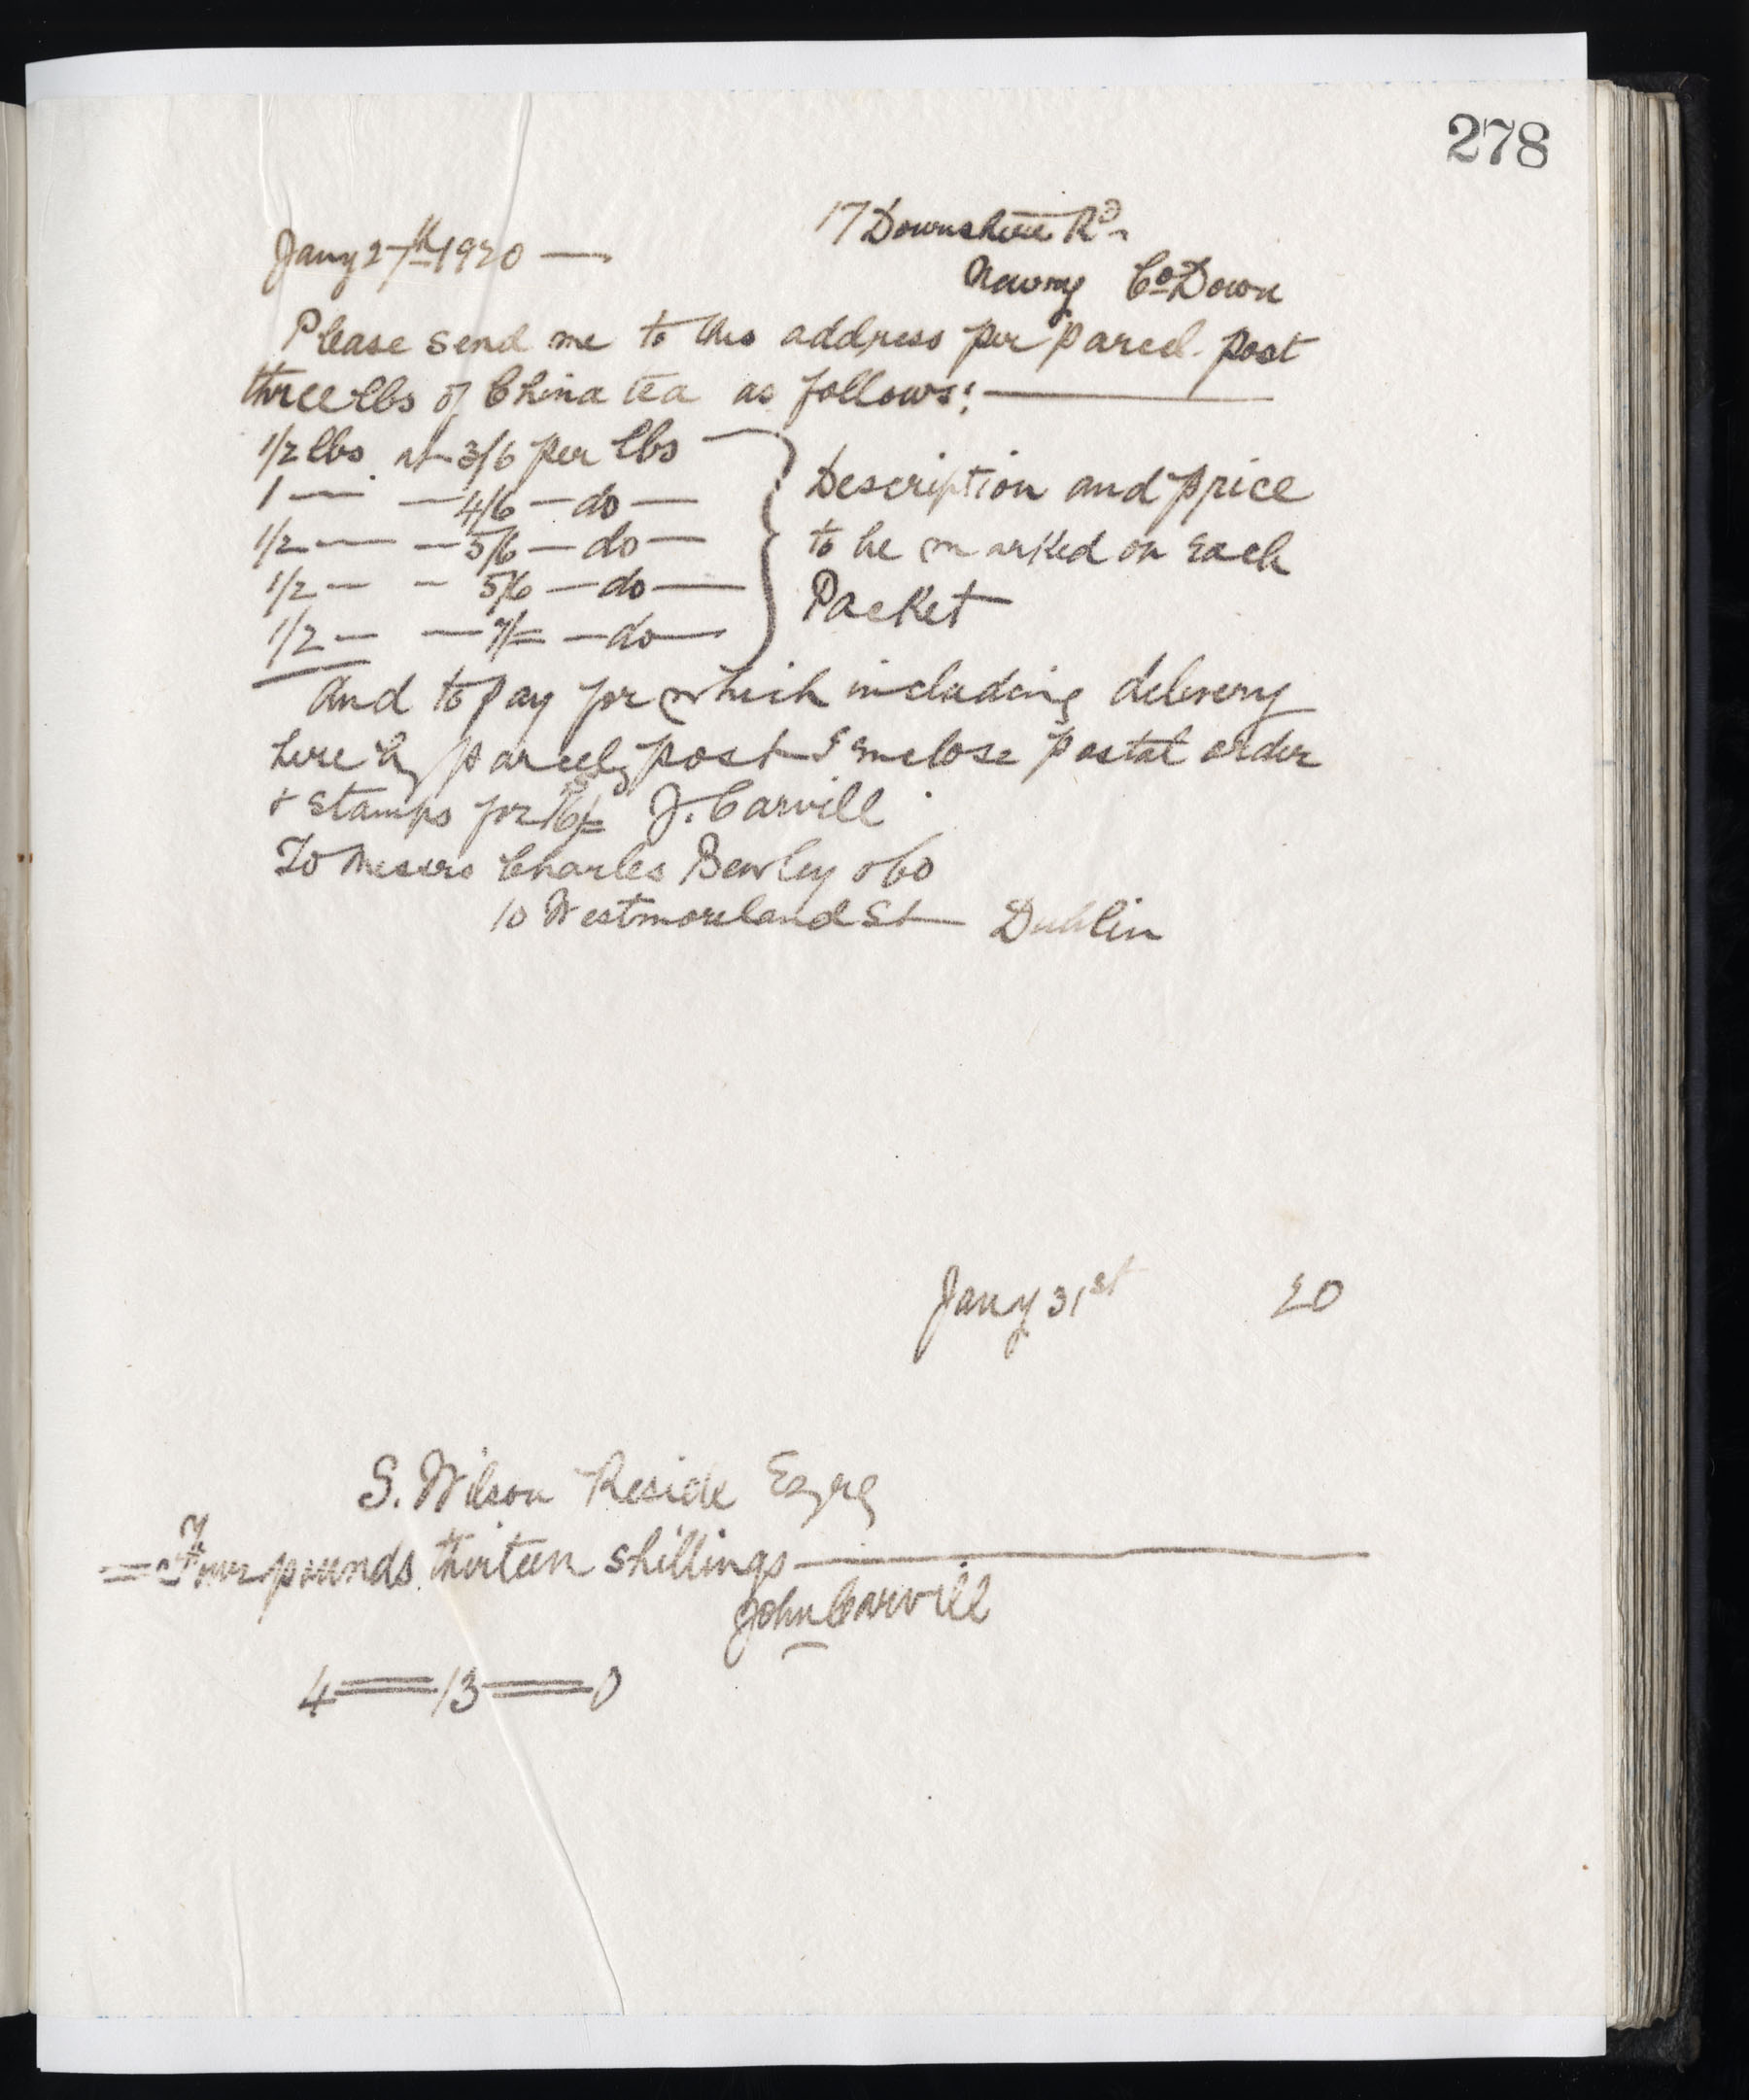 278
Jany 27th 1920 —
17 Downshire Rd
Newry Co Down
Please send me to this address per parcel post
three lbs of China tea as follows: —
1/2 lbs at 3/6 per lbs —
1 — — 4/6 — do —
1/2 — — 5/6 — do —
1/2 — — 5/6 — do —
1/2 — — 7/= — do —
Description and price
to be marked on each
Packet
And to pay for which including delivery
here by parcel post I enclose postal order
& stamps for J. Carvill
To Messrs Charles Bewley & Co
10 Westmoreland St Dublin
Jany 31st 20
S. Wilson Reside Esqre
= Four pounds thirteen shillings —
John Carvill
4 = 13 = 0